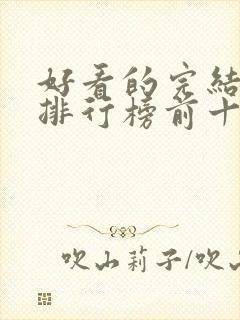 好看的完結
排行榜前十
吹山莉子/吹山